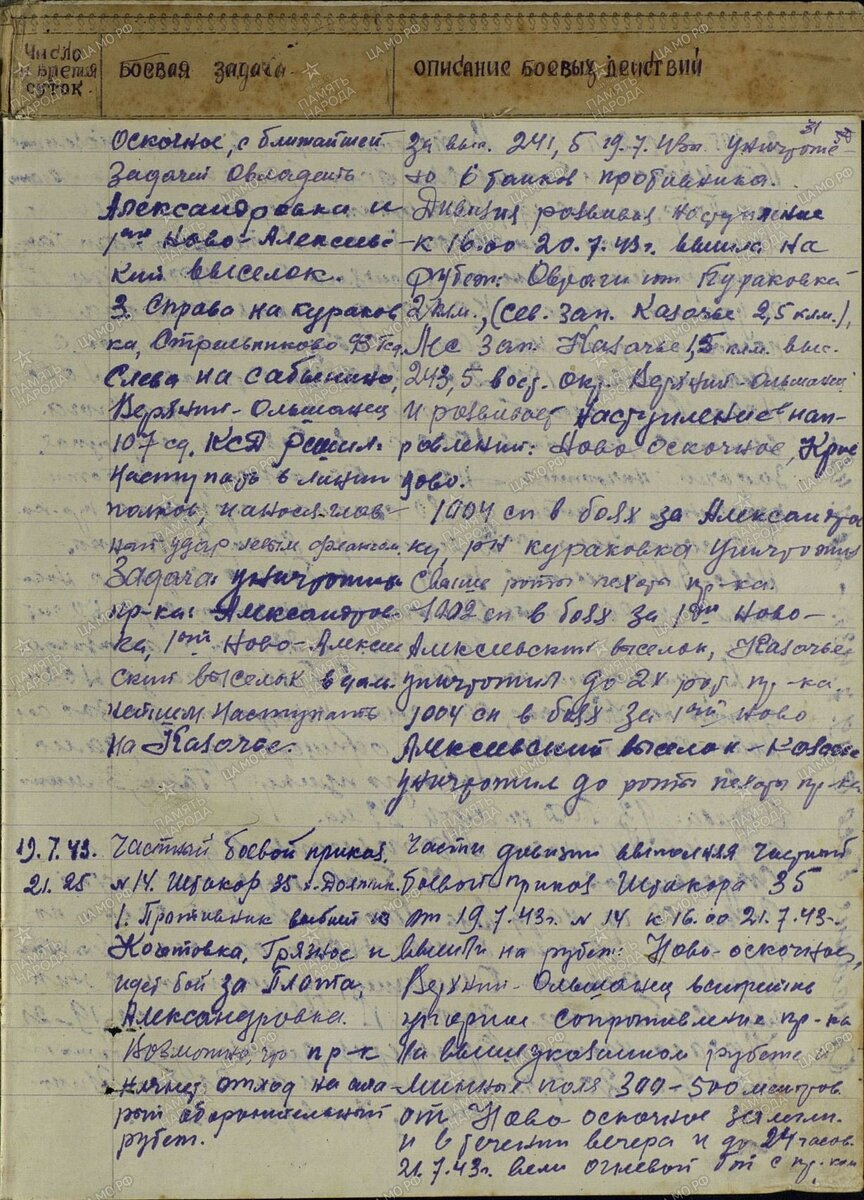 Число
и время
суток
Боевая задача
Описание боевых действий
31
Оскочное, с ближайшей
задачей овладеть
Александровка и
1ый Ново-Алексеевс-
кий выселок.
3. Справа на кураков
ка, Стрельниково 93 гсд.
Слева на сабынино,
Верхний-Ольшанец
107 сд. КСД решил:
наступать в линии
полков, нанося глав-
ный удар левым флангом.
Задача: уничтожить
пр-ка: Александров-
ка, 1ый Ново-Алексеев
ский выселок в даль
нейшем наступать
на Казачье.
За выс. 241,5 19.7.43г. уничтоже-
но 6 танков противника.
Дивизия развивая наступление
к 16.00 20.7.43г. вышла на
рубеж: Овраги Кураковка
2 клм., (сев. зап. Казачье 2,5 клм.),
зап. Казачье 1,5 клм. выс.
243,5 вост. окр. Верхний-Ольшанец
и развивает наступление в нап-
равлении: Ново оскочное, Крив
цово.
1004 сп в боях за Александров
ку, рн кураковка уничтожил
свыше роты пехоты пр-ка.
-1002 сп в боях за 1ый Ново-
Алексеевский выселок, Казачье
уничтожил до 2х рот пр-ка.
1004 сп в боях за 1ый Ново
Алексеевский выселок-Казачье
уничтожил до роты пехоты пр-ка.
19.7.43.
21.25
Частный боевой приказ.
№14. Штакор 35
1. Противник выбит из
Кочетовка, Грязное и
идет бой за Плота,
Александровка.
Возможно, что пр-к
начнет отход на ста-
рый оборонительный
рубеж.
Части дивизии выполняя частный
боевой приказ Штакора 35
от 19.7.43г. №14 к 16.00 21.7.43г.
вышли на рубеж: Ново-оскочное,
Верхний-Ольшанец встретив
упорное сопротивление пр-ка
на вышеуказанном рубеже и
минные поля 300-500 метров
от Ново оскочное залегли.
и в течении вечера и до 24 часов
21.7.43г. вели огневой бой с пр-ком
ПАМЯТЬ
НАРОДА
ЦАМО.РФ